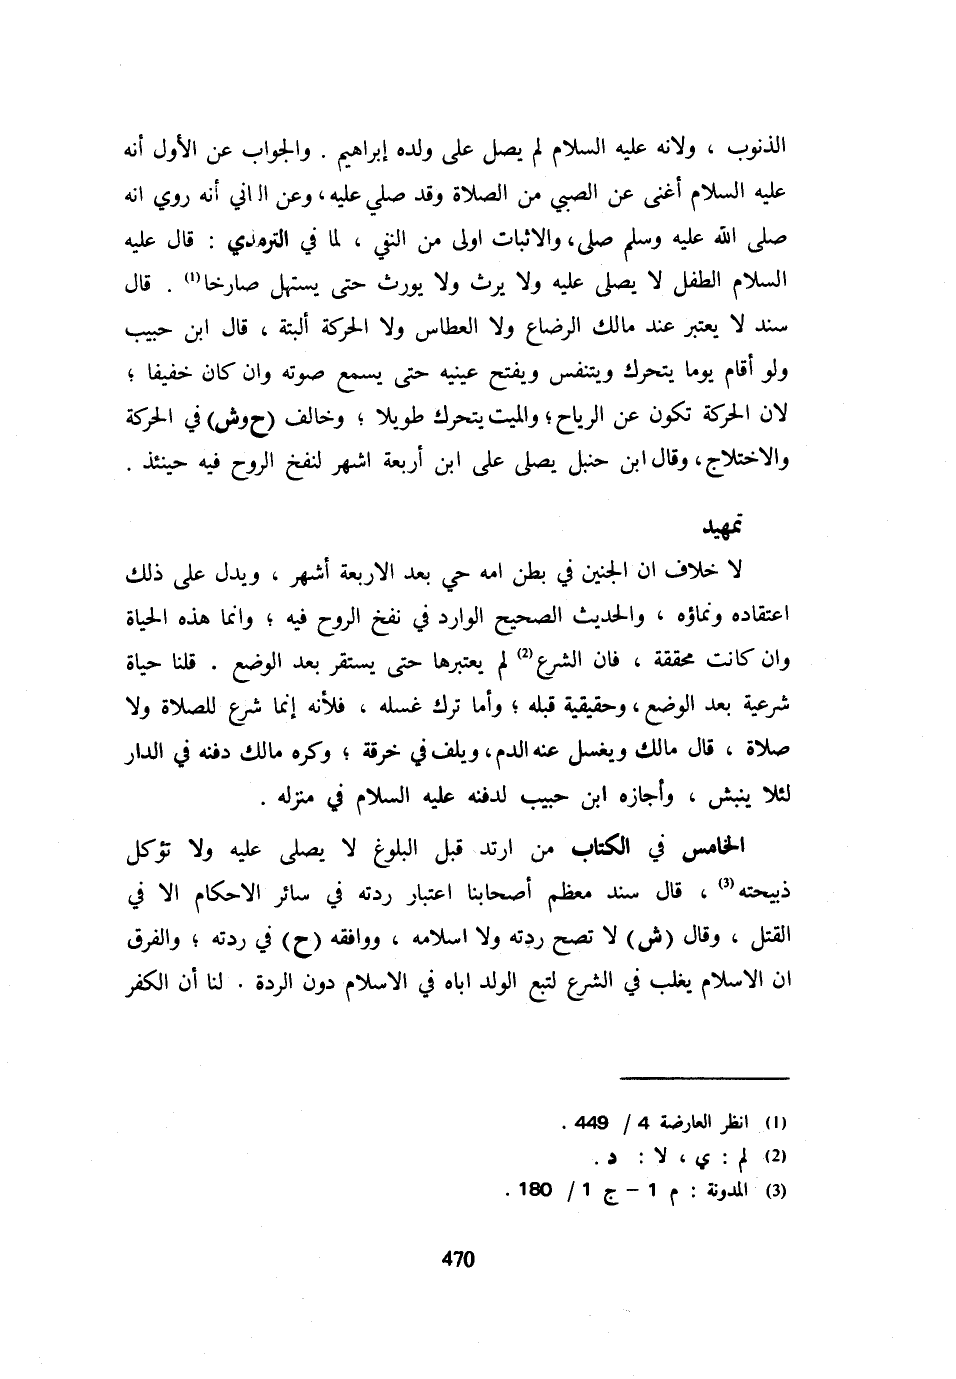 الذنوب ، ولانه عليه السلام لم يصل على ولده إبراهيم . والجواب عن الأول أنه
عليه السلام أغنى عن الصبي من الصلاة وقد صلي عليه ، وعن الـ اني أنه روي انه
صلى الله عليه وسلم صلى، والاثبات اولى من النفي ، لما في الترمذي : قال عليه
السلام الطفل لا يصلى عليه ولا يرث ولا يورث حتى يستهل صارخا(1) . قال
سند لا يعتبر عند مالك الرضاع ولا العطاس ولا الحركة ألبتة ، قال ابن حبيب
ولو أقام يوما يتحرك ويتنفس ويفتح عينيه حتى يسمع صوته وان كان خفيفا ؛
لان الحركة تكون عن الرياح ؛ والميت يتحرك طويلا ؛ وخالف (ح وش) في الحركة
والاختلاج ، وقال ابن حنبل يصلى على ابن أربعة اشهر لنفخ الروح فيه حينئذ .
تمهيد
لا خلاف ان الجنين في بطن امه حي بعد الاربعة أشهر ، ويدل على ذلك
اعتقاده ونماؤه ، والحديث الصحيح الوارد في نفخ الروح فيه ؛ وانما هذه الحياة
وان كانت محققة ، فان الشرع(2) لم يعتبرها حتى يستقر بعد الوضع . قلنا حياة
شرعية بعد الوضع ، وحقيقية قبله ؛ وأما ترك غسله ، فلأنه إنما شرع للصلاة ولا
صلاة ، قال مالك ويغسل عنه الدم ، ويلف في خرقة ؛ وكره مالك دفنه في الدار
لئلا ينبش ، وأجازه ابن حبيب لدفنه عليه السلام في منزله .
الخامس في الكتاب من ارتد قبل البلوغ لا يصلى عليه ولا تؤكل
ذبيحته(3) ، قال سند معظم أصحابنا اعتبار ردته في سائر الاحكام الا في
القتل ، وقال (ش) لا تصح ردته ولا اسلامه ، ووافقه (ح) في ردته ؛ والفرق
ان الاسلام يغلب في الشرع لتبع الولد اباه في الاسلام دون الردة . لنا أن الكفر
(1) انظر العارضة 4 / 449 .
(2) لم : ي ، لا : د .
(3) المدونة : م 1 – ج 1 / 180 .
470